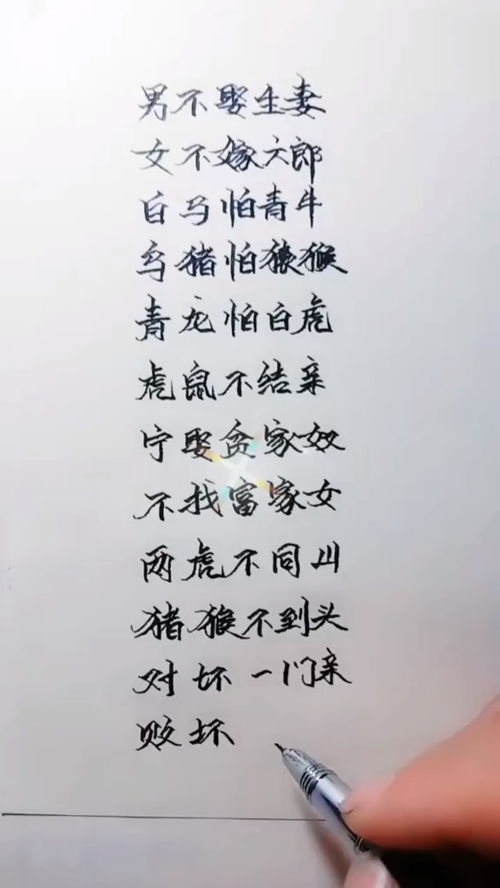 男不娶生妻
女不嫁六郎
白马怕青牛
乌猪怕猿猴
青龙怕白虎
虎鼠不结亲
宁娶贫家奴
不找富家女
两虎不同山
猪猴不到头
对坏一门亲
败坏